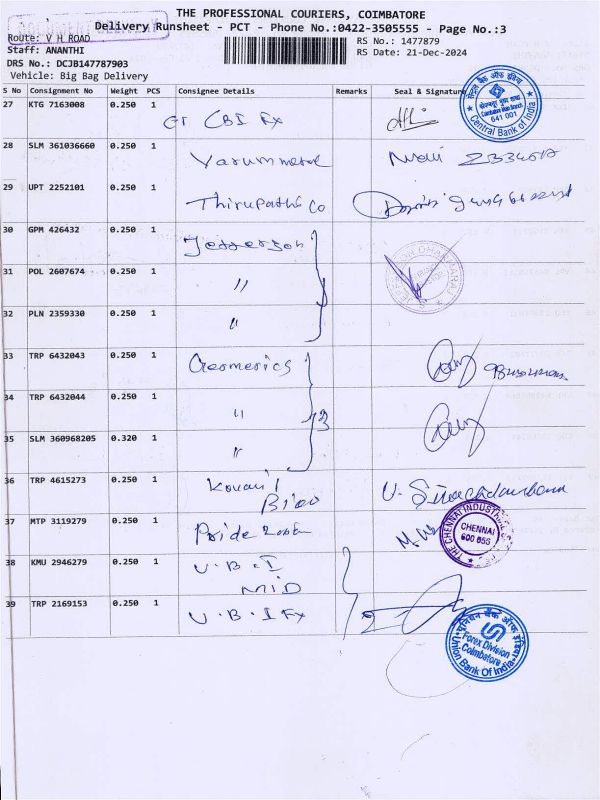 THE PROFESSIONAL COURIERS, COIMBATORE
Delivery Runsheet - PCT - Phone No.:0422-3505555 - Page No.:3
Route: V H ROAD
RS No.: 1477879
Staff: ANANTHI
RS Date: 21-Dec-2024
DRS No.: DCJB147787903
Vehicle: Big Bag Delivery
S No Consignment No Weight PCS Consignee Details Remarks Seal & Signature
27 KTG 7163008 0.250 1 CBI Fx
सेन्ट्रल बैंक ऑफ इंडिया
641 001
Central Bank of India
28 SLM 361036660 0.250 1 Varummetal
29 UPT 2252101 0.250 1 Thirupathi Co
30 GPM 426432 0.250 1 Jefferson
31 POL 2607674 0.250 1 "
32 PLN 2359330 0.250 1 "
33 TRP 6432043 0.250 1 Geomerics
34 TRP 6432044 0.250 1 " 3
35 SLM 360968205 0.320 1 "
36 TRP 4615273 0.250 1 Kovai
37 MTP 3119279 0.250 1 Pride
THE CHENNAI INDUSTRIAL
CHENNAI
600 055
38 KMU 2946279 0.250 1 U.B.I
MID
39 TRP 2169153 0.250 1 U.B.I Fx
यूनियन बैंक ऑफ इंडिया
Forex Division
Coimbatore
Union Bank Of India